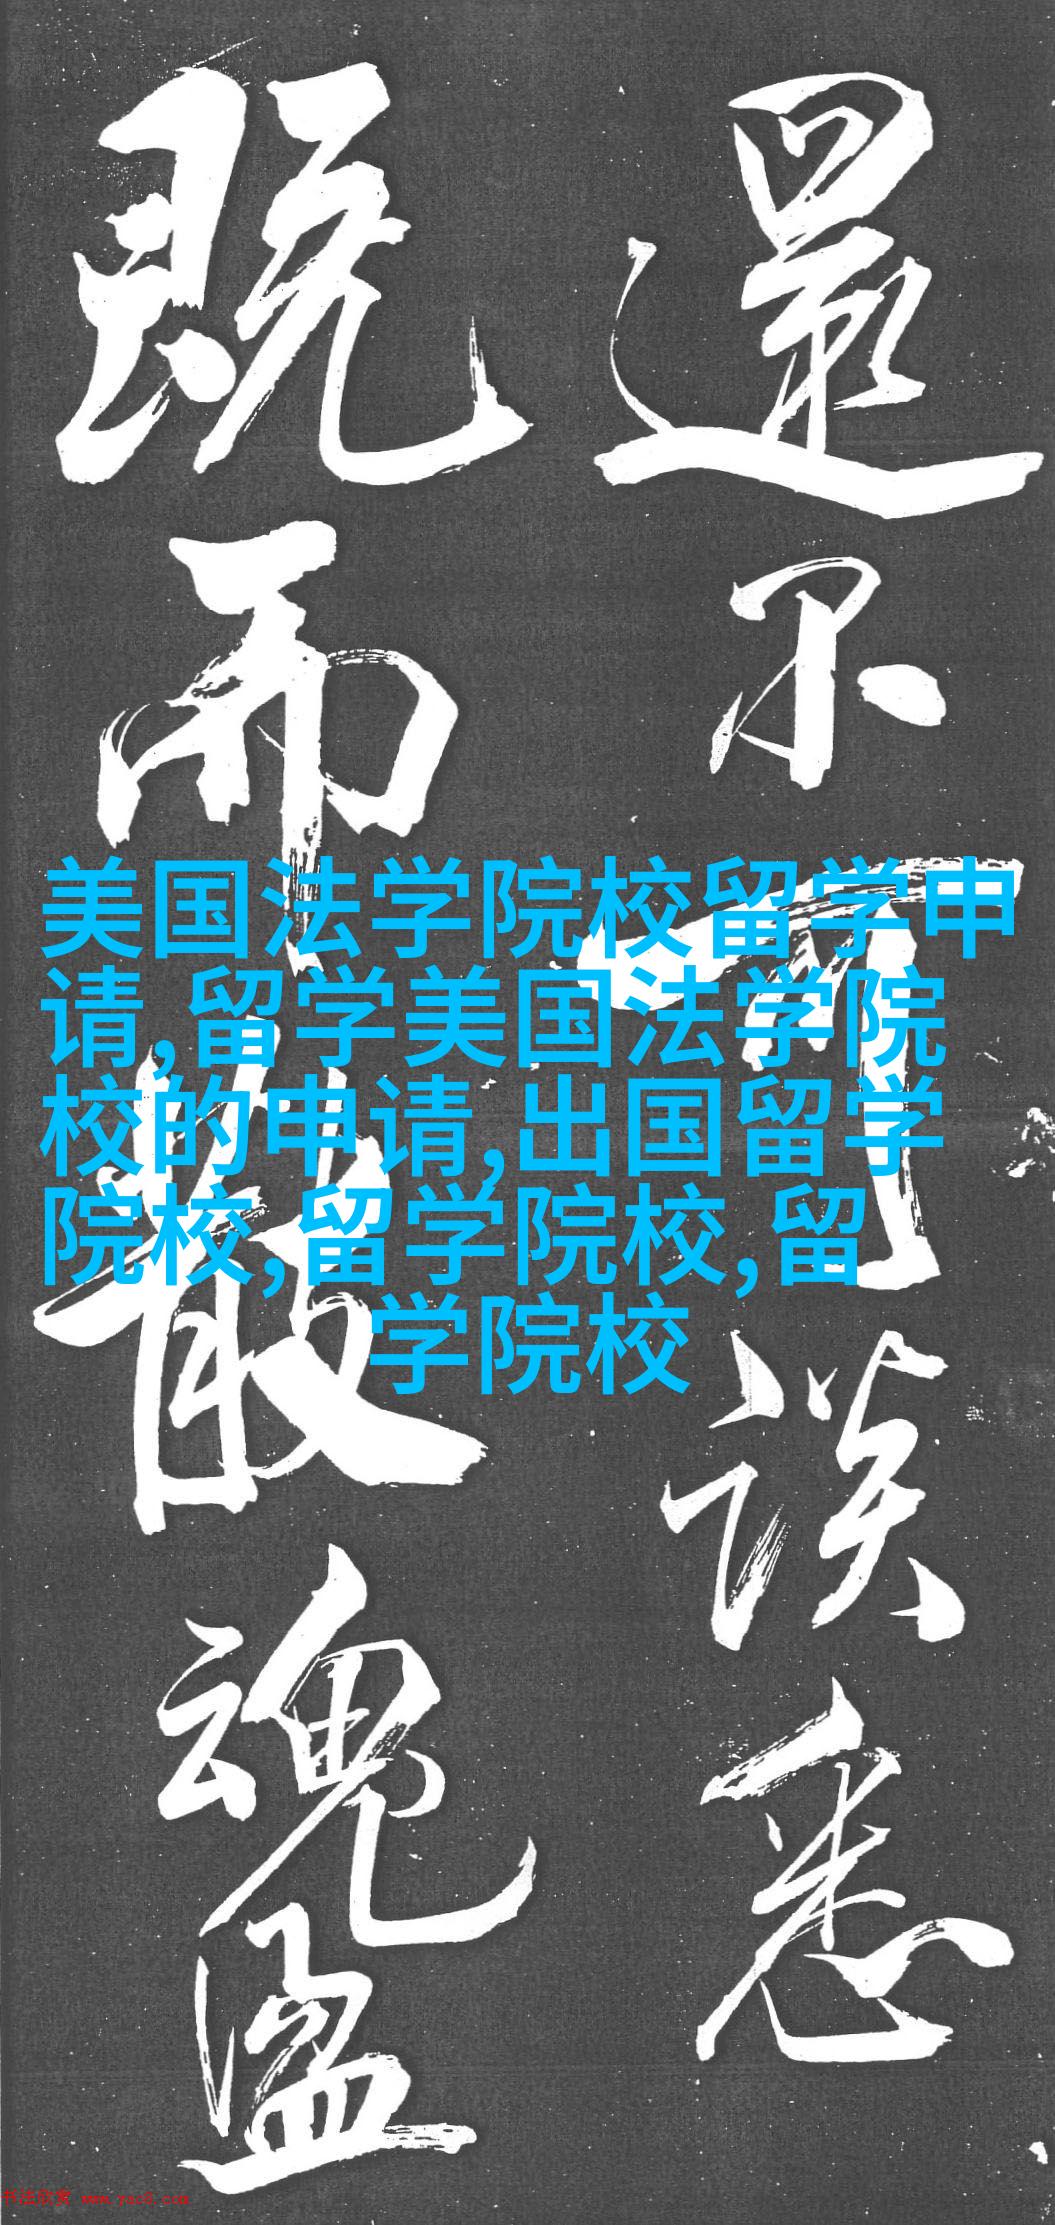 還不可談悉
既而散魂溫
美国法学院校留学申
请,留学美国法学院
校的申请,出国留学
院校,留学院校,留
学院校
书法欣赏 www.yac8.com